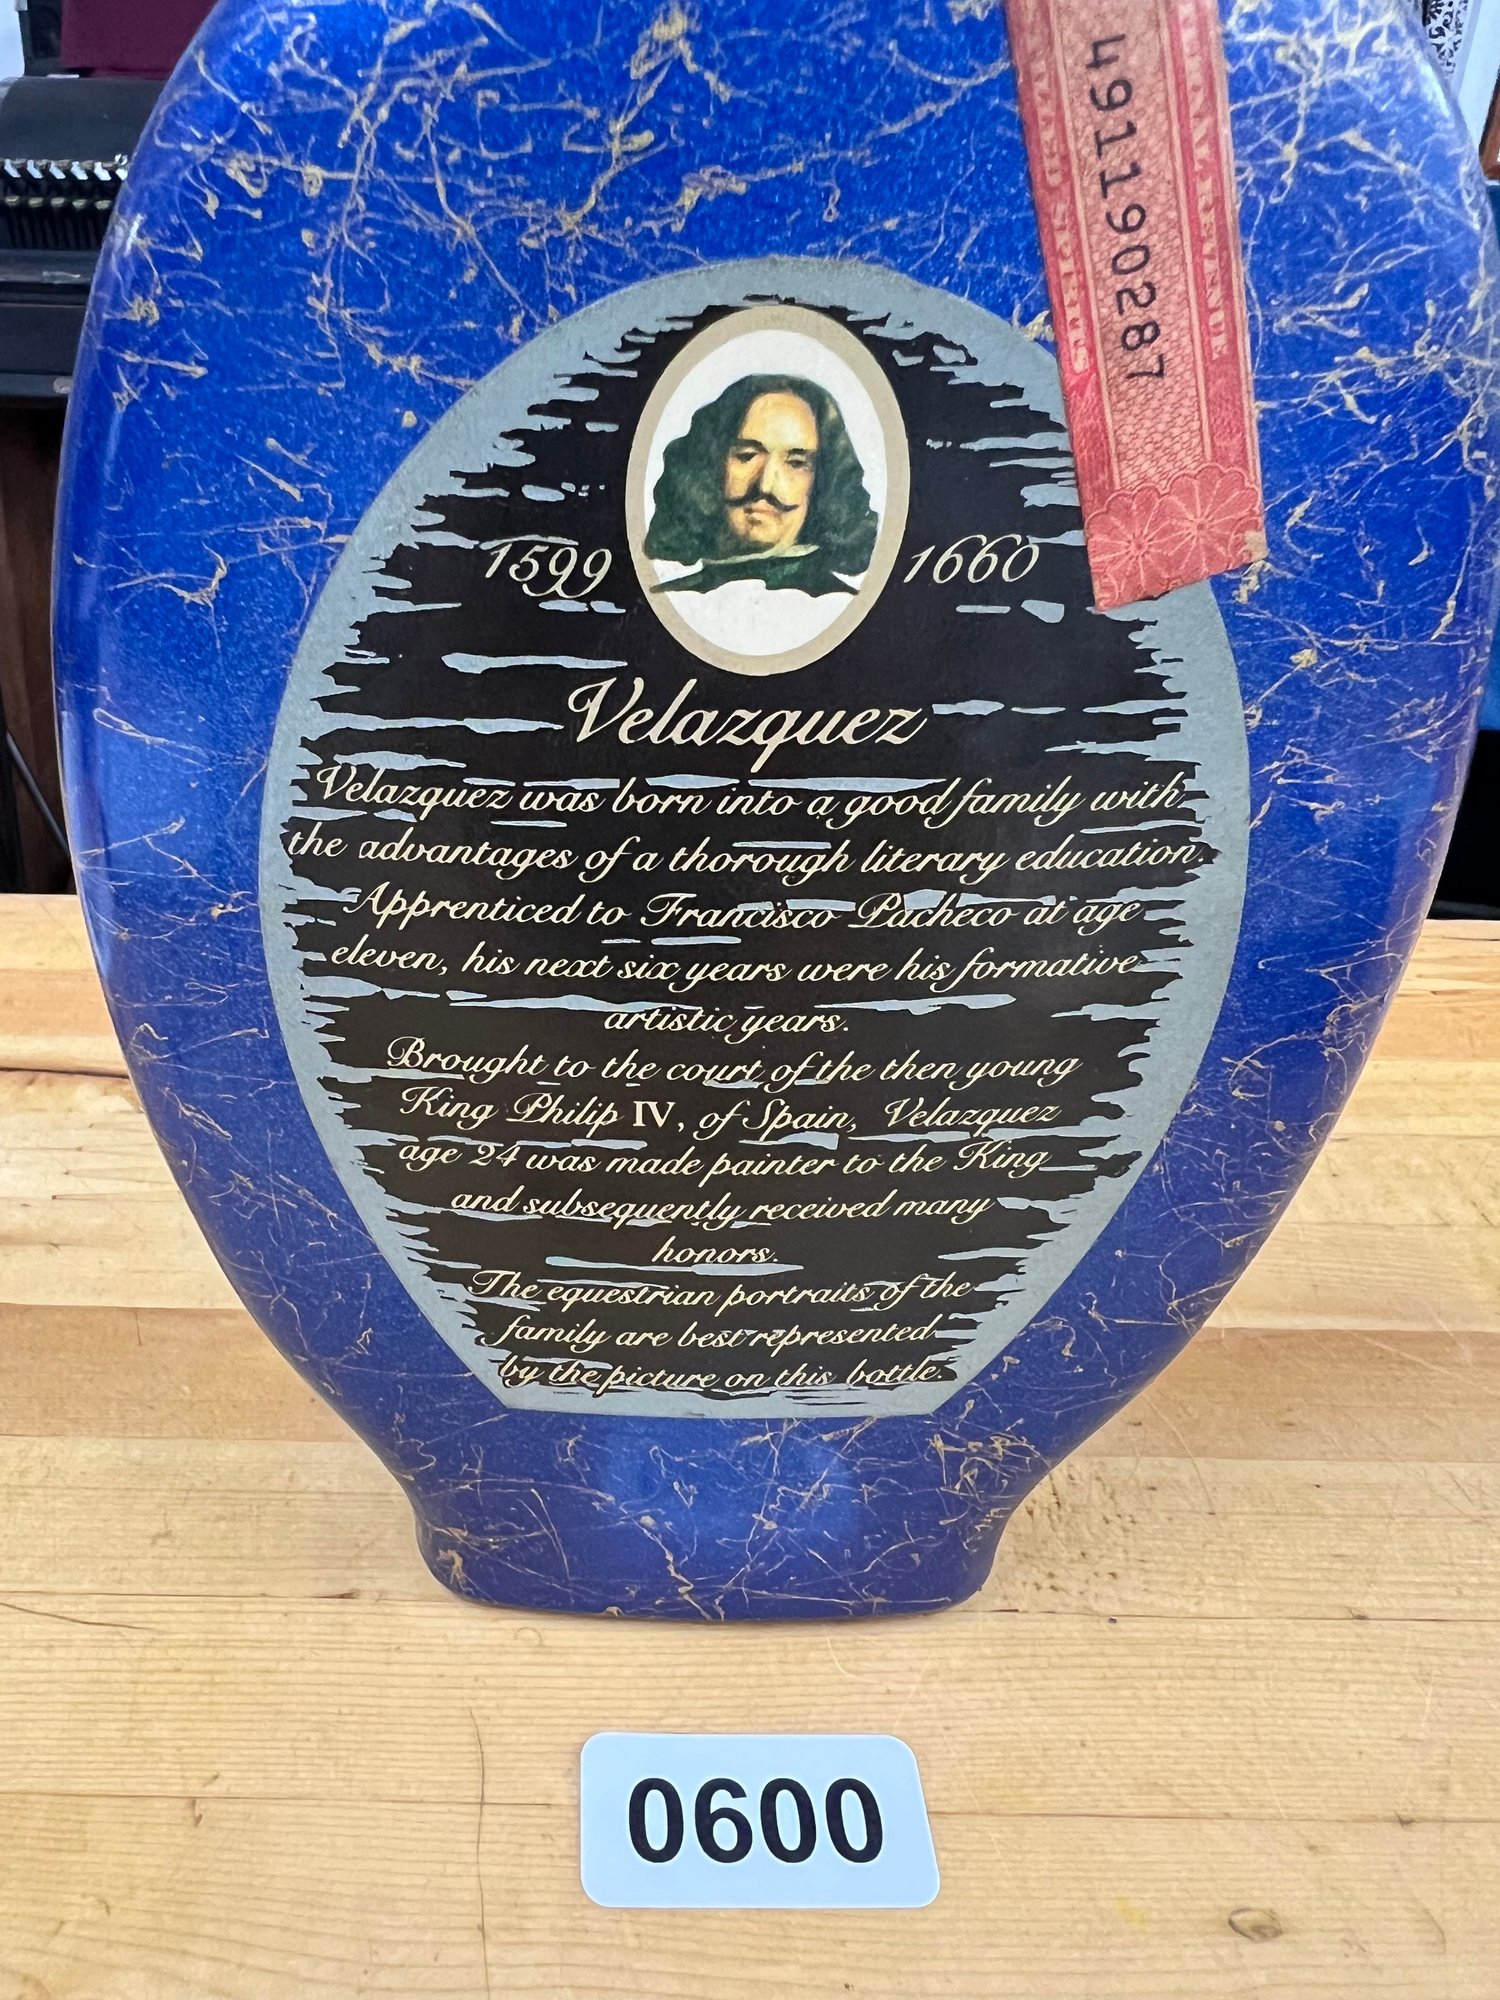 491190287
1599
1660
Velazquez
Velazquez was born into a good family with
the advantages of a thorough literary education.
Apprenticed to Francisco Pacheco at age
eleven, his next six years were his formative
artistic years.
Brought to the court of the then young
King Philip IV, of Spain, Velazquez
age 24 was made painter to the King
and subsequently received many
honors.
The equestrian portraits of the
family are best represented
by the picture on this bottle.
0600